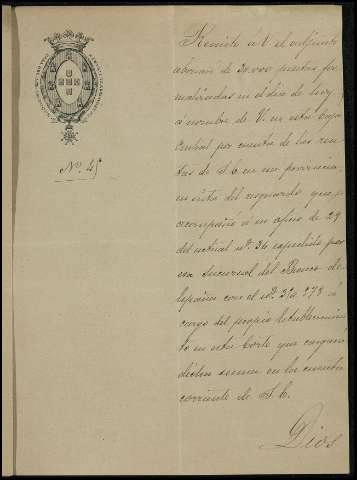 Nº. 45
Remito á V. el adjunto
abonaré de 30.000 pesetas for
malizadas en el dia de hoy
á nombre de V. en esta Caja
Central por cuenta de las ren
tas de S. C. en esa provincia,
en vista del resguardo que
acompañó á su oficio de 29
del actual nº. 36 expedido por
esa Sucursal del Banco de
España con el nº. 378 á
cargo del propio Establecimien
to en esta Corte que cargará
dicha suma en la cuenta
corriente de S. C.
Dios